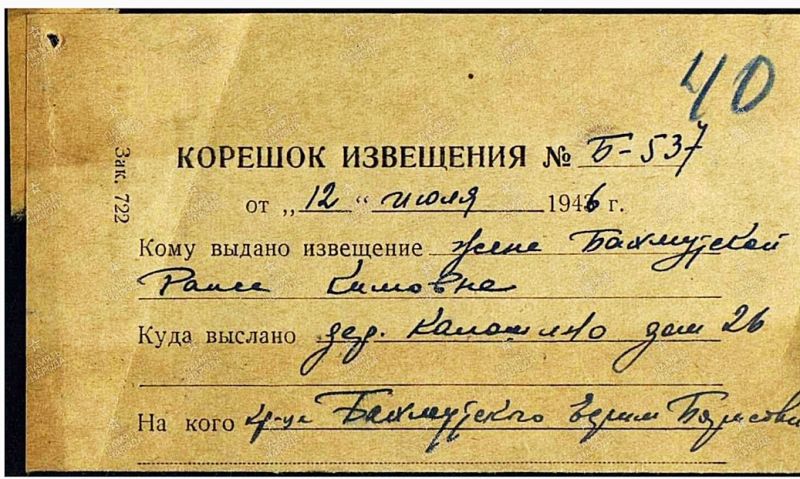 40
Зак. 722
КОРЕШОК ИЗВЕЩЕНИЯ № Б-537
от „12" июля 1946 г.
Кому выдано извещение жене Бахмутской
Раисе Кимовне
Куда выслано дер. Калошино дом 26
На кого кр-ца Бахмутского Ефим